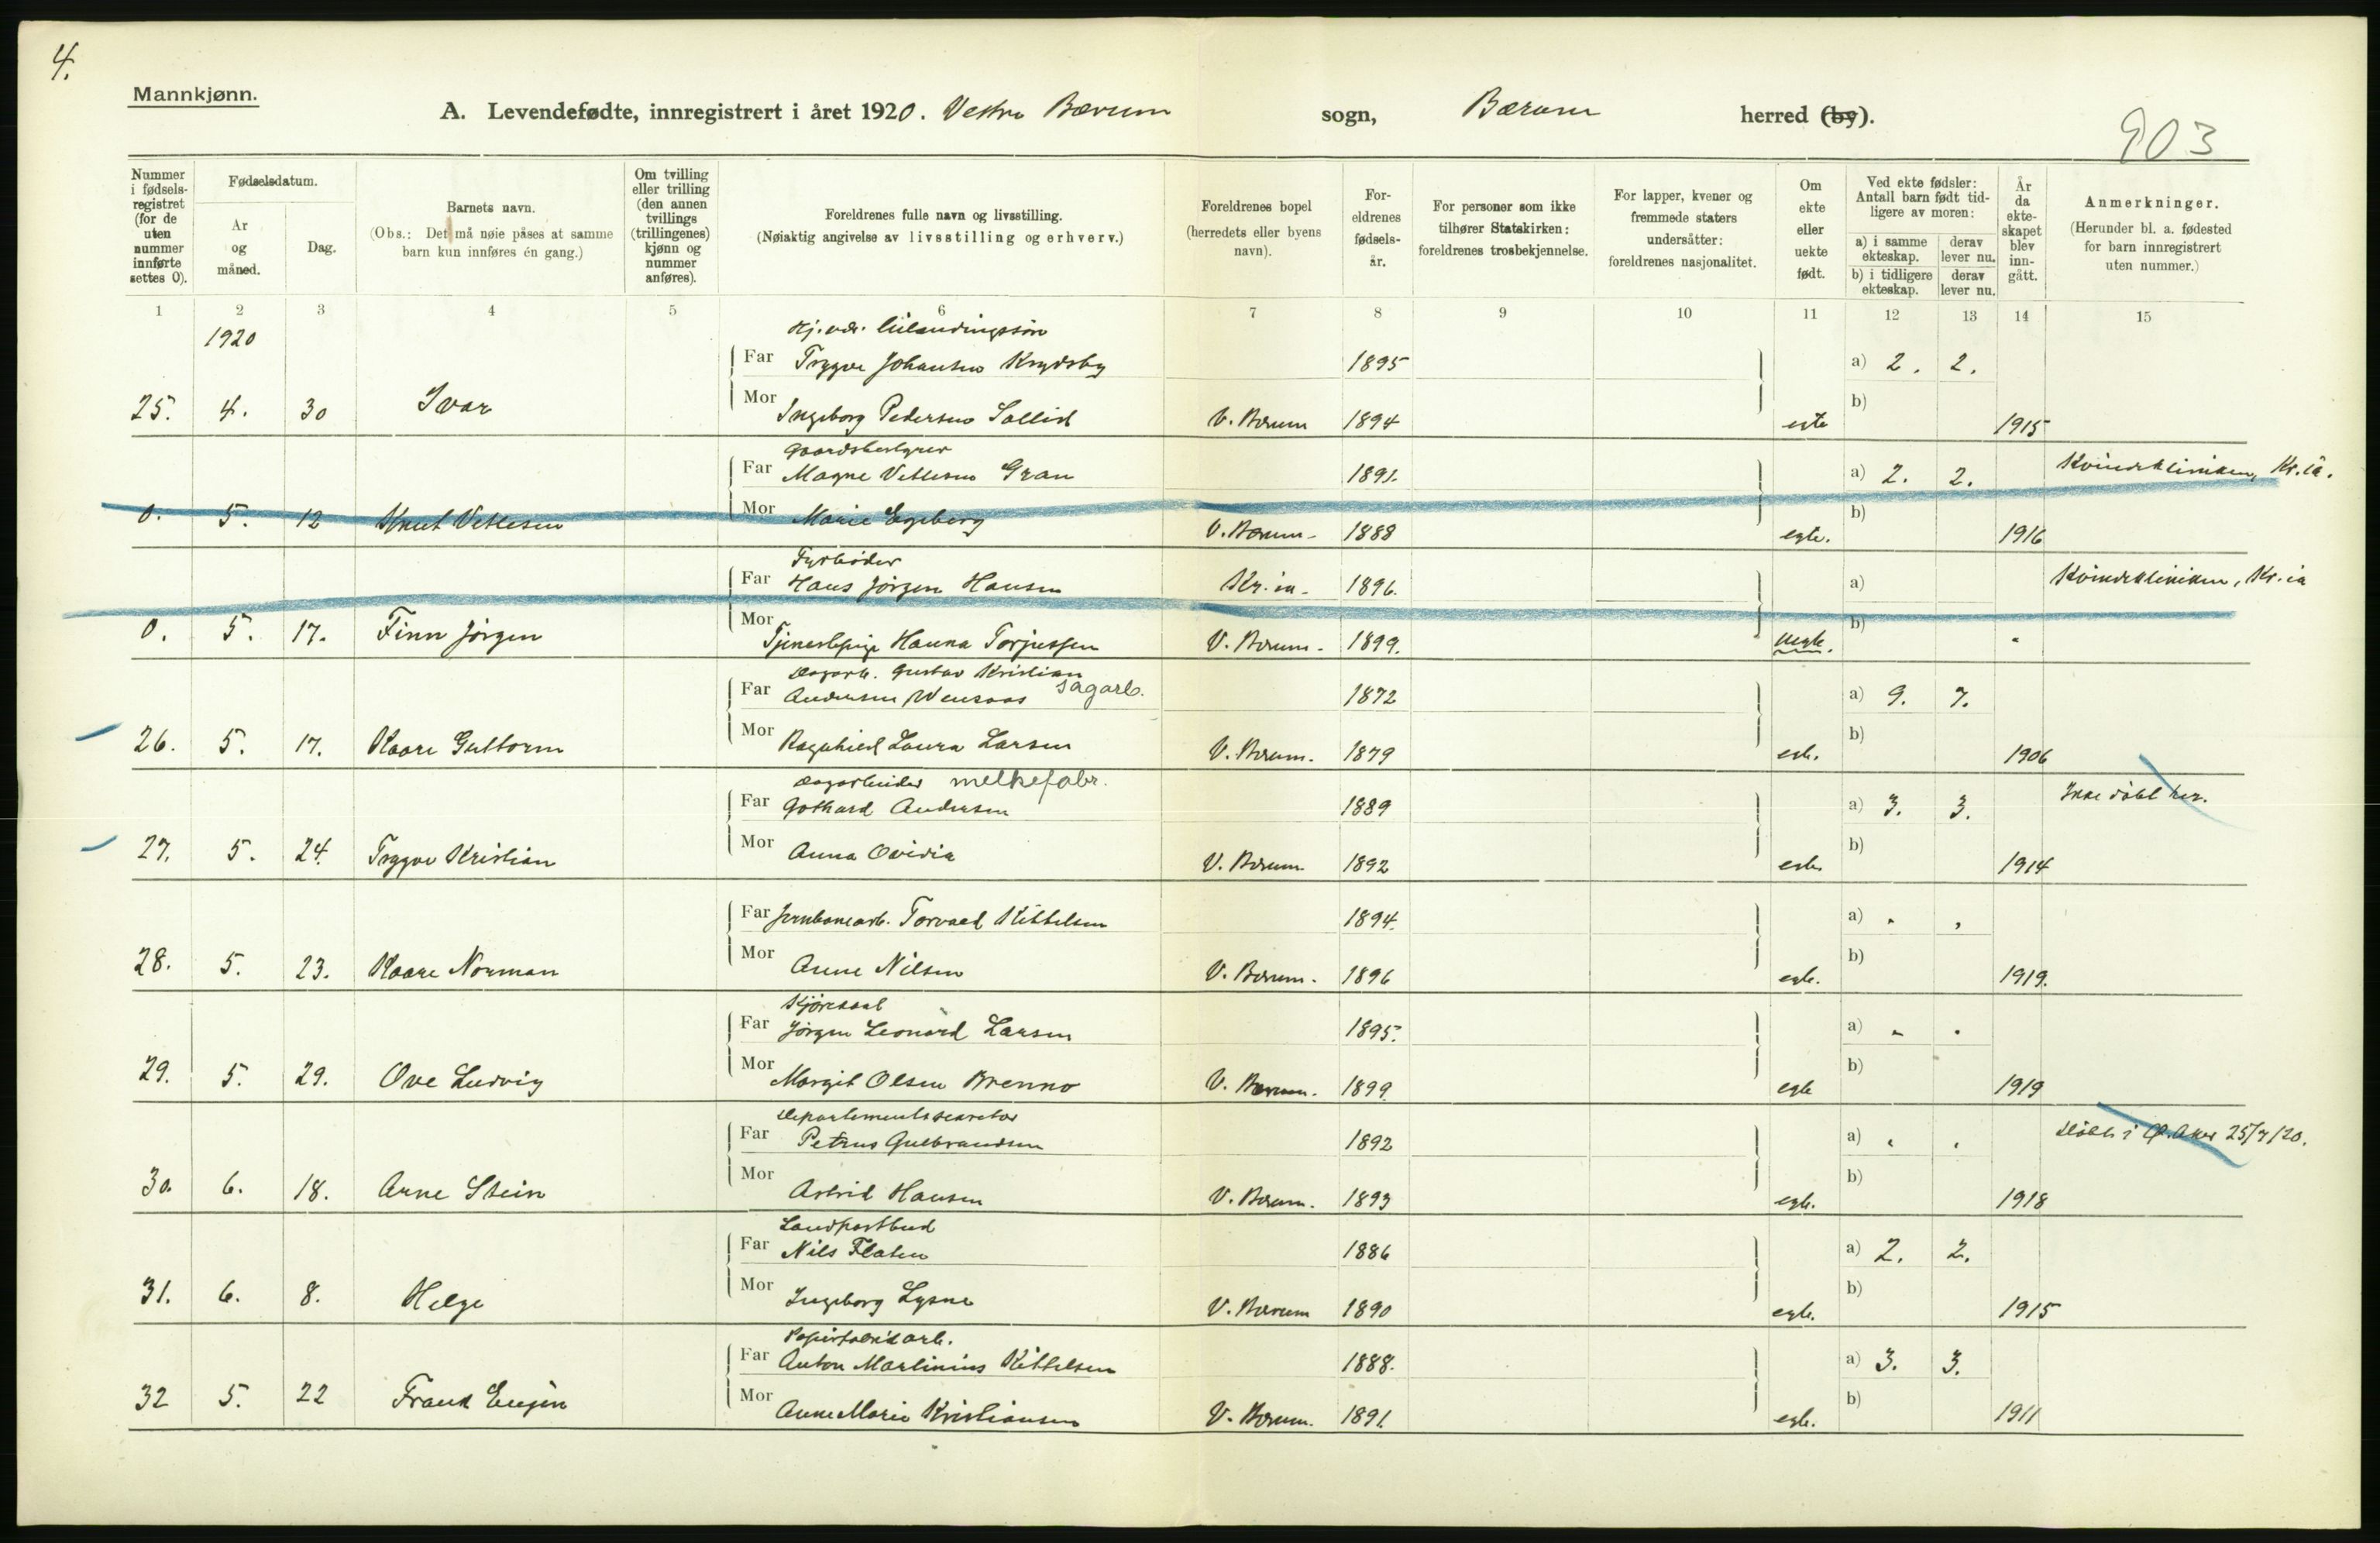 4.
Mannkjønn.
A. Levendefødte, innregistrert i året 1920. Vestre Bærum sogn, Bærum herred (by).
903
Nummer i fødselsregistret (for de uten nummer innførte settes 0).
Fødselsdatum.
År og måned.
Dag.
Barnets navn.
(Obs.: Det må nøie påses at samme barn kun innføres én gang.)
Om tvilling eller trilling (den annen tvillings (trillingenes) kjønn og nummer anføres).
Foreldrenes fulle navn og livsstilling.
(Nøiaktig angivelse av livsstilling og erhverv.)
Foreldrenes bopel (herredets eller byens navn).
Foreldrenes fødselsår.
For personer som ikke tilhører Statskirken: foreldrenes trosbekjennelse.
For lapper, kvener og fremmede staters undersåtter: foreldrenes nasjonalitet.
Om ekte eller uekte født.
Ved ekte fødsler: Antall barn født tidligere av moren:
a) i samme ekteskap. derav lever nu.
b) i tidligere ekteskap. derav lever nu.
År da ekteskapet blev inngått.
Anmerkninger.
(Herunder bl. a. fødested for barn innregistrert uten nummer.)
1 2 3 4 5 6 7 8 9 10 11 12 13 14 15
1920
Far Trygve Johansen Krydsby 1895 a) 2. 2.
25. 4. 30 Ivar Mor Ingeborg Pedersen Sollid V. Bærum 1894 egte b) 1915
Gaardsbestyrer
Far Magne Vetlesen Gran 1891. a) 2. 2. Kvindekliniken, Kr.ia.
0. 5. 12 Knut Vetlesen Mor Marie Egeberg V. Bærum - 1888 egte. b) 1916
Fyrbøder
Far Hans Jörgen Hansen Kr. ia - 1896. a) Kvindekliniken, Kr. ia
0. 5. 17. Finn Jörgen Mor Tjenestepige Hanna Torjussen V. Bærum - 1899. uegte. b)
Dagarb. Gustav Kristian
Far Andersen Wensaas sagarb. 1872 a) 9. 7.
26. 5. 17. Kaare Guttorm Mor Ragnhild Laura Larsen V. Bærum. 1879 egte. b) 1906
Dagarbeider melkefabr.
Far Gothard Andersen 1889 a) 3. 3. Ikke döbt her.
27. 5. 24. Trygve Kristian Mor Anna Ovidia V. Bærum 1892 egte b) 1914
Far Jernbanearb. Torvald Kittelsen 1894. a) " "
28. 5. 23. Kaare Norman Mor Anne Nilsen V. Bærum. 1896 egte. b) 1919.
Kjörekarl
Far Jörgen Leonard Larsen 1895. a) " "
29. 5. 29. Ove Ludvig Mor Margit Olsen Brenno V. Bærum. 1899. egte b) 1919
Departementssekretær
Far Petrus Gulbrandsen 1892 a) " " Döbt i Ø. Aker 25/7/20.
30. 6. 18. Arne Stein Mor Astrid Hansen V. Bærum. 1893 egte. b) 1918
Landpostbud
Far Nils Flaten 1886 a) 2. 2.
31. 6. 8. Helge Mor Ingeborg Lysne V. Bærum 1890 egte. b) 1915
Papirfabrikarb.
Far Anton Martinius Kittelsen 1888. a) 3. 3.
32 5. 22 Frank Eugen Mor Anne Marie Kristiansen V. Bærum. 1891. egte. b) 1911